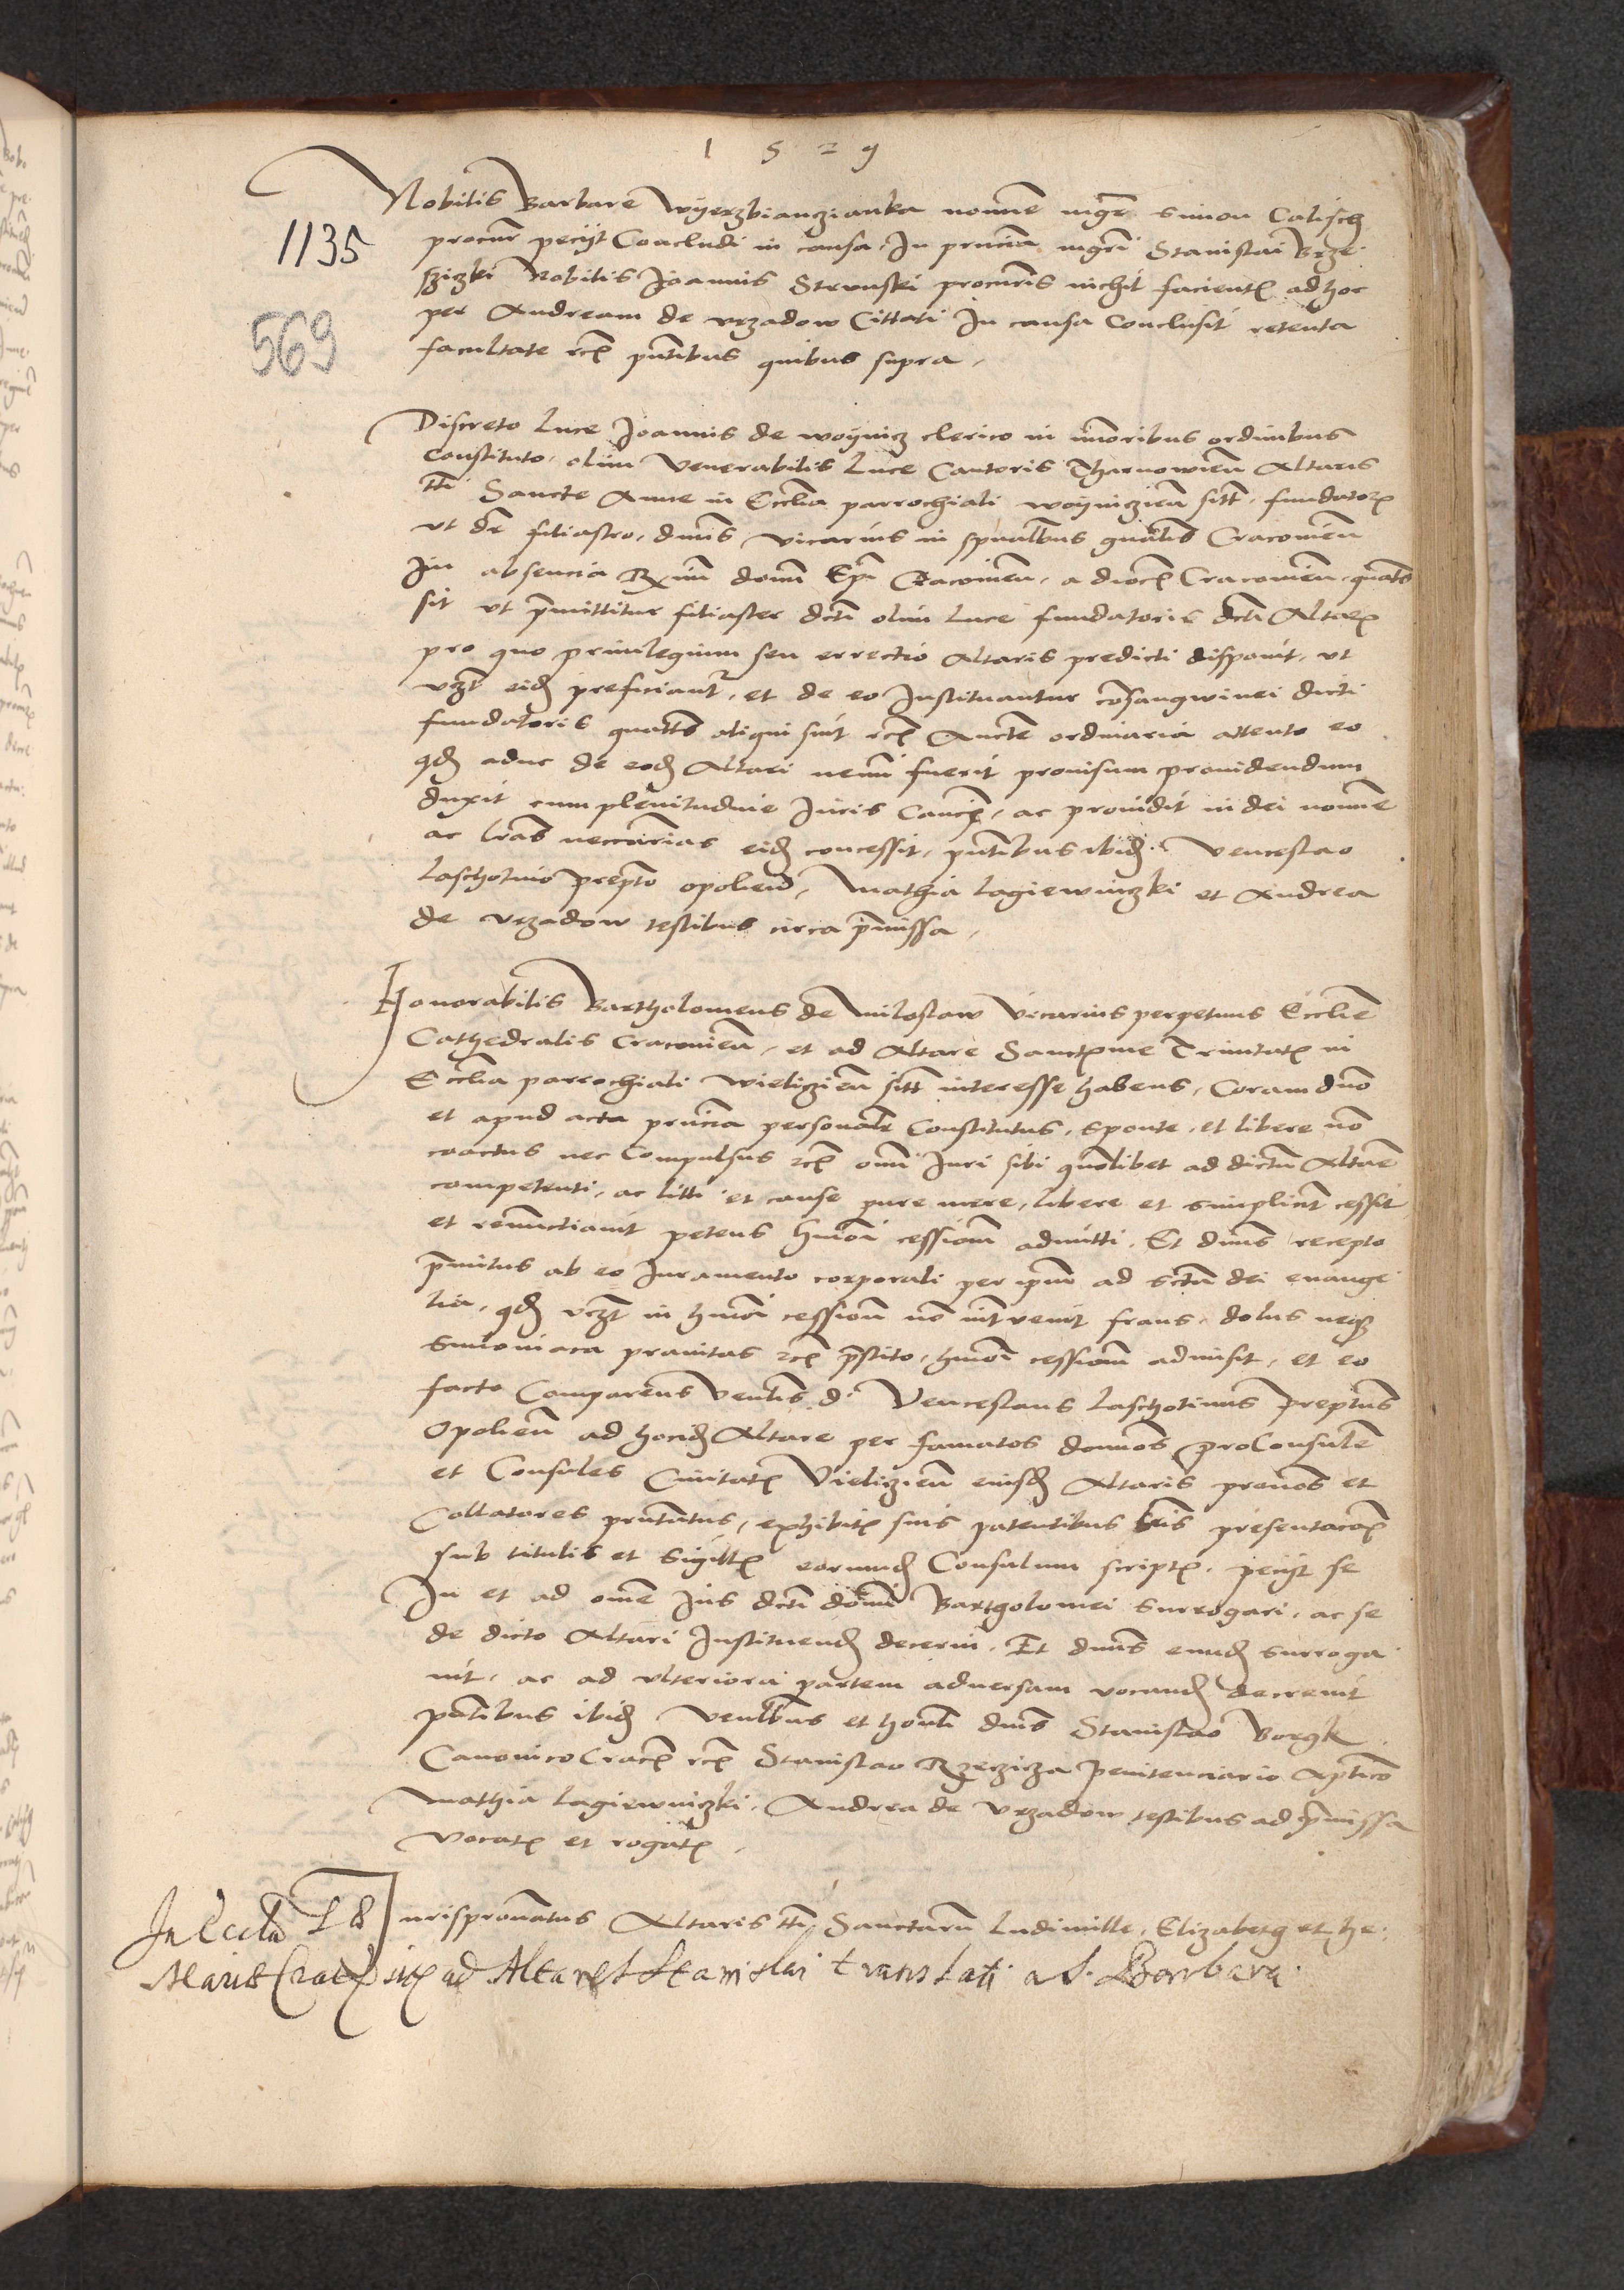 1529
Nobilis Barbare Wyerzbianczianka nomine mgr Simon Calisch
1135
procur pecyt Concludi in causa, In pñcia mgri Stanislai Brze
sziczki Nobilis Joannis Strunski procuris nichil facient ad hoc
per Andream de Vrzadow Cittati In causa Conclusit retenta
569
facultate rc pñtibus quibus supra,
Discreto Luce Joannis de Woynicz clerico in minoribus ordinibus
constituto, olim Venerabilis Luce Cantoris Tharnowien Altaris
tti Sancte Anne in Ecclia parrochiali Woyniczien sitt, fundatoris
vt dr filiastro, dnus vicarius in spualibus gnalis Cracovien
In absencia Rmi domi Epi Cracovien, a dioc Cracovien, quatus
sit vt pmittitur filiaster dcti olim Luce fundatoris dcti Altaris
pro quo privilegium seu errectio Altaris predicti disponit, vt
vzt eid preficiantr, et de eo Instituantur cosangwinei dicti
fundatoris quatus aliqui sint rc Aucte ordinaria attento eo
qd aduc de eod Altari nemi fuerit provisum providendum
duxit cum plenitudine Juris Canci, ac providit in dei nomine
ac lras neccarias eid concessit, pñtibus ibid. Venceslao
Laschotino prepto opolien, Mathia Lagiewniczki et Andrea
de Vrzadow testibus circa pmissa,
Honorabilis Bartholomeus de Miloslaw Vicarius perpetuus Ecclie
Cathedralis Cracovien, et ad Altare Sanctme Trinitatis in
Ecclia parrochiali Wieliczien sitt interesse habens, Coram dno
et apud acta pñcia personalr Constitutus, sponte, et libere no
coactus nec Compulsus rc omi Juri sibi quolibet ad dictu Altare
competenti, ac litti et cause pure mere, libere et simplicit cessit
et renunctiavit petens hmoi cessiom admitti. Et dnus recepto
pmitus ab eo Juramento corporali per ipm ad scta dei evange
lia, qd vzt in hmoi cessiom no intvenit fraus, dolus neq
simoniaca pravitas rc pstito, hmoi cessiom admisit, et eo
facto Comparens Venlis d. Venceslaus Laschotinus preptus
Opolien ad hocid Altare per famatos domos proConsule
et Consules Civitatis Vieliczien eiusd Altaris pronos et
Collatores pntatus, exhibitis suis patentibus lris presentacois
sub titulis et sigillis eorumd Consulum scriptis, pecyt se
In et ad ome Jus dcti domi Bartholomei surrogari, ac se
de dicto Altari Instituend decerni. Et dnus eund surroga
vit, ac ad vlteriora partem adversam vocand decrevit
pntibus ibid Venlibus et honli dnis Stanislao Borgk
Canonico Crac rc Stanislao Rzeczicza Penitenciario Aplico
Mathia Lagiewniczki, Andrea de Vrzadow testibus ad pmissa
vocatis et rogatis,
In Ecclia
Jurispronatus Altaris tti Sanctaru Ludimille, Elizabeth et he:
Mariae Crac sitj ad Altare S Stanislai translati a S. Barbara.